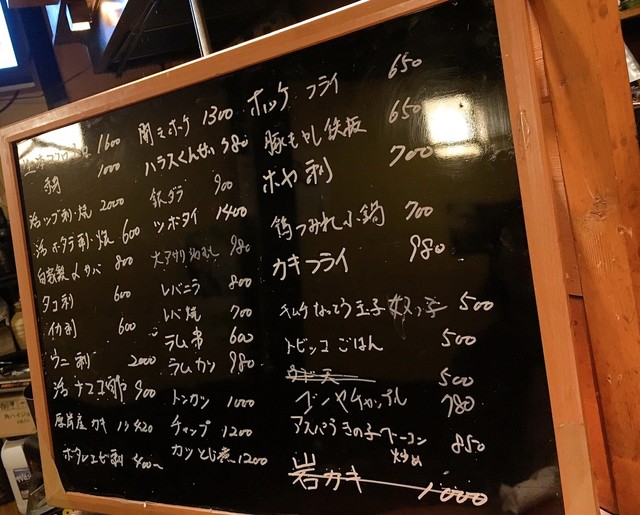 1600
1000
活ツブ刺・焼 2000
活ホタテ刺・焼 600
自家製〆サバ 800
タコ刺 600
イカ刺 600
ウニ刺 2000
活ナマコ酢 900
厚岸産カキ 1ケ 420
ボタンエビ刺 400〜
開きホッケ 1300
ハラスくんせい 380
銀ダラ 900
ツボタイ 1400
大アサリ 980
レバニラ 800
レバ焼 700
ラム串 600
ラムカツ 980
トンカツ 1000
チャップ 1200
カツとじ煮 1200
ホッケフライ 650
豚もやし鉄板 650
ホヤ刺 700
鶏つみれ小鍋 700
カキフライ 980
チムケなっとう玉子奴っ子 500
トビッコごはん 500
500
ゴーヤチャップル 780
アスパラきの子ベーコン炒め 850
岩カキ 1000